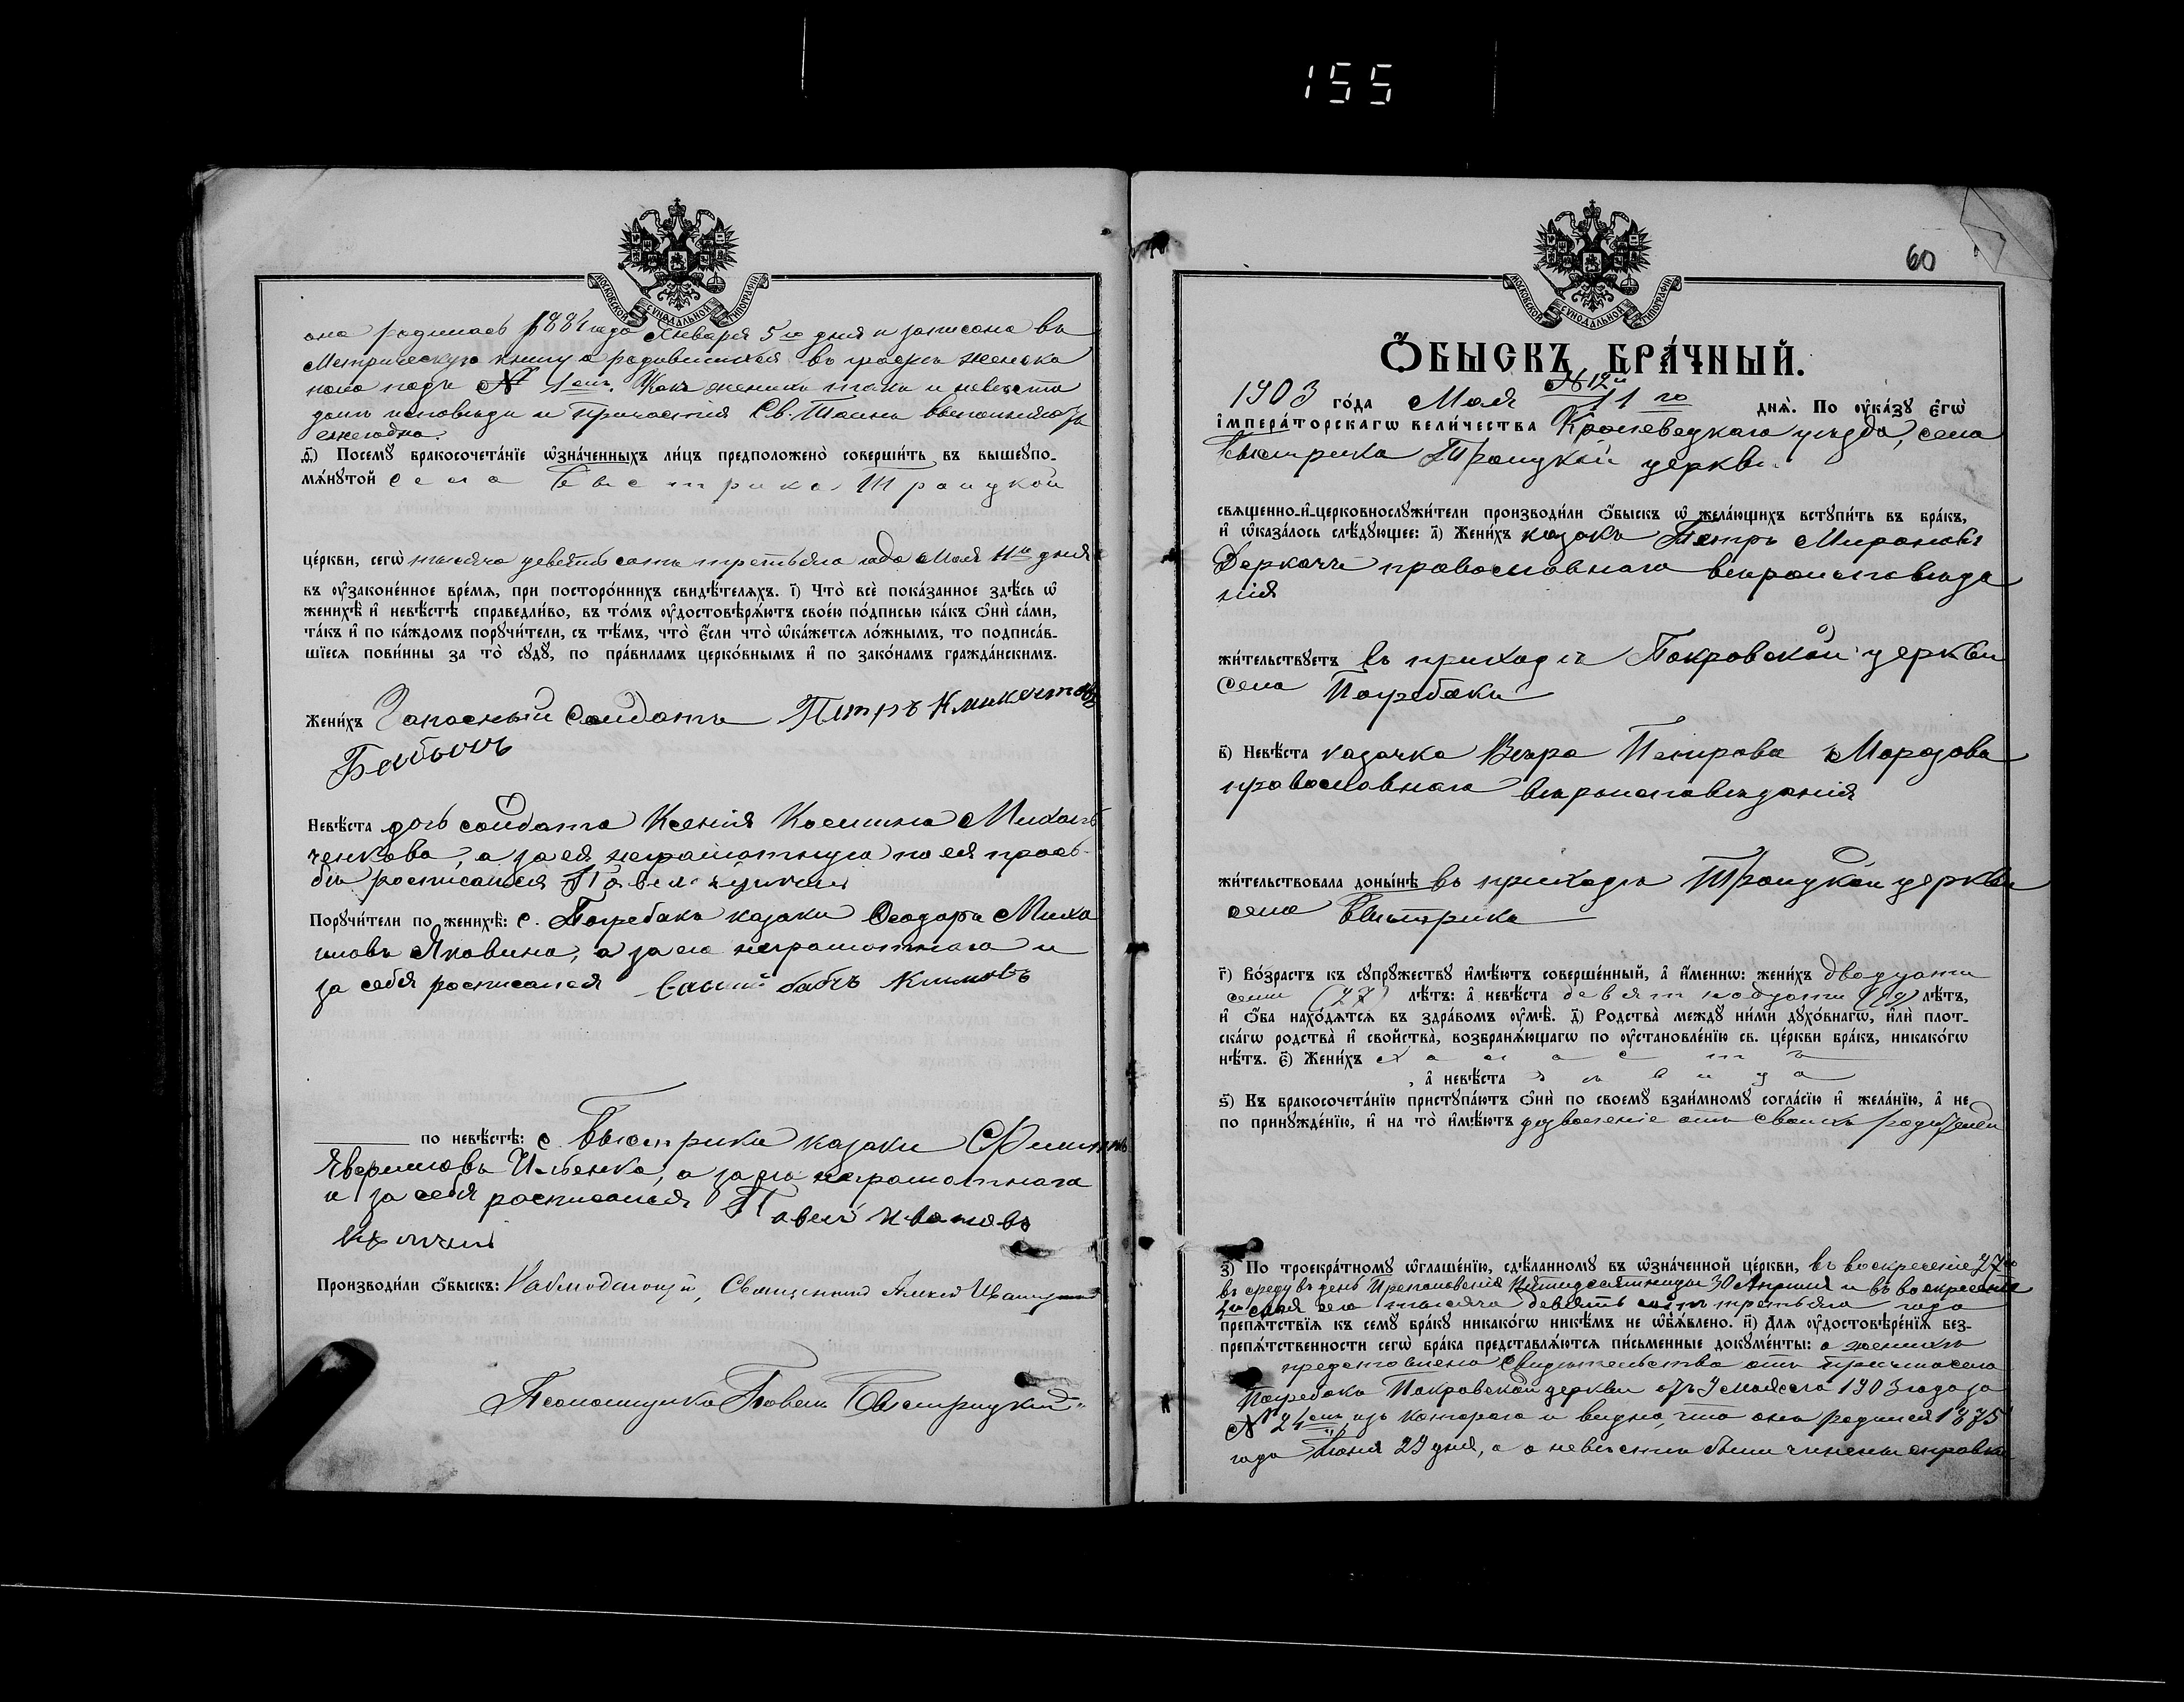 155
МОСКОВСКОЙ СѴНОДАЛЬНОЙ ТИПОГРАФІИ
она родилась 1884 года Января 5го дня и записана въ
Метрическую книгу о родившихся въ графѣ женска
го пола № 1емъ. Какъ женихъ такъ и невѣста
долгъ исповѣди и Причастія Св. Таинъ выполняютъ
ежегодно.
Посемꙋ бракосочета́нїе ѡ҆зна́ченныхъ ли́цъ предположено̀ соверши́ть въ вышеꙋпо-
мѧ́нꙋтой села Быстрика Троицкой
це́ркви, сегѡ̀ тысяча девятьсотъ третьяго года Мая 11го дня
въ ᲂу҆законе́нное вре́мѧ, при посторо́ннихъ свидѣ́телѧхъ. і҃) Что̀ всѐ пока́занное здѣ́сь ѡ҆
женихѣ̀ и҆ невѣ́стѣ справедли́во, въ то́мъ ᲂу҆достовѣрѧ́ютъ свое́ю по́дписью ка́къ ѻ҆нѝ са́ми,
та́къ и҆ по ка́ждомъ порꙋчи́тели, съ тѣ́мъ, что̀ є҆́сли что̀ ѡ҆ка́жетсѧ ло́жнымъ, то подписа́в-
шїесѧ пови́нны за то̀ сꙋдꙋ̀, по пра́виламъ церко́внымъ и҆ по зако́намъ гражда́нскимъ.
Жени́хъ Запасный солдатъ Петръ
Невѣ́ста дочь солдата Ксенія Косьмина Михаль
ченкова, а за ея неграмотную по ея прось-
бѣ росписался Павелъ
Порꙋчи́тели по женихѣ̀: с. Погребокъ казаки Ѳеодоръ Миха
иловъ Яковина, а за его неграмотнаго и
за себя росписался
по невѣ́стѣ: с. Быстрика казаки Филиппъ
Ильенко, а за его неграмотнаго
и за себя росписался Павелъ Ивановъ
Производи́ли ѻ҆́быскъ: Наблюдающій, Священникъ Алексѣй
Псаломщикъ Павелъ Быстрицкій
60
МОСКОВСКОЙ СѴНОДАЛЬНОЙ ТИПОГРАФІИ
Ѻ҆́БЫСКЪ БРА́ЧНЫЙ.
№ 12й
1903 го́да Мая 11го днѧ̀. По ᲂу҆ка́зꙋ є҆гѡ̀
і҆мпера́торскагѡ вели́чества Кролевецкаго уѣзда, села
Быстрика Троицкой церкви
свѧщенно-и҆-церковнослꙋжи́тели производи́ли ѻ҆́быскъ ѡ҆ жела́ющихъ встꙋпи́ть въ бра́къ,
и҆ ѡ҆каза́лось слѣ́дꙋющее: а҃) Жени́хъ казакъ Петръ Мироновъ
Деркачъ православнаго вѣроисповѣда
нія
жи́тельствꙋетъ въ приходѣ Покровской церкви
села Погребки
в҃) Невѣ́ста казачка Вѣра Петрова Морозова
православнаго вѣроисповѣданія
жи́тельствовала доны́нѣ въ приходѣ Троицкой церкви
села Быстрика
г҃) Во́зрастъ къ сꙋпрꙋжествꙋ и҆мѣ́ютъ соверше́нный, а҆ и҆́меннѡ: жени́хъ двадцати
семи (27) лѣ́тъ: а҆ невѣ́ста девятнадцати (19) лѣ́тъ,
и҆ ѻ҆́ба нахо́дѧтсѧ въ здра́вомъ ᲂу҆мѣ̀. д҃) Родства̀ междꙋ ни́ми дꙋхо́внагѡ, и҆лѝ плот-
ска́гѡ родства̀ и҆ свойства̀, возбранѧ́ющагѡ по ᲂу҆становле́нїю св. це́ркви бра́къ, никако́гѡ
нѣ́тъ. є҃) Жени́хъ холостъ
, а҆ невѣ́ста дѣвица
ѕ҃) Къ бракосочета́нїю пристꙋпа́ютъ ѻ҆нѝ по своемꙋ̀ взаи́мномꙋ согла́сїю и҆ жела́нїю, а҆ не
по принꙋжде́нїю, и҆ на то̀ и҆мѣ́ютъ дозволеніе отъ своихъ родителей
з҃) По троекра́тномꙋ ѡ҆глаше́нїю, сдѣ́ланномꙋ въ ѡ҆зна́ченной це́ркви, въ воскресеніе 27го
въ среду въ день Преполовенія Пятидесятницы 30 Апрѣля и въ воскресеніе
4го Мая сего тысяча девятьсотъ третьяго года
препѧ́тствїѧ къ семꙋ̀ бра́кꙋ никако́гѡ никѣ́мъ не ѡ҆б̾ѧ́влено. и҃) Длѧ ᲂу҆достовѣре́нїѧ без-
препѧ́тственности сегѡ̀ бра́ка представлѧ́ютсѧ пи́сьменные докꙋме́нты: о женихѣ
представлено Свидѣтельство отъ причта села
Погребокъ Покровской церкви отъ 9 мая сего 1903 года за
№ 24емъ, изъ котораго и видно, что онъ родился 1875
года Іюня 29 дня, а о невѣстѣ были чинены справки